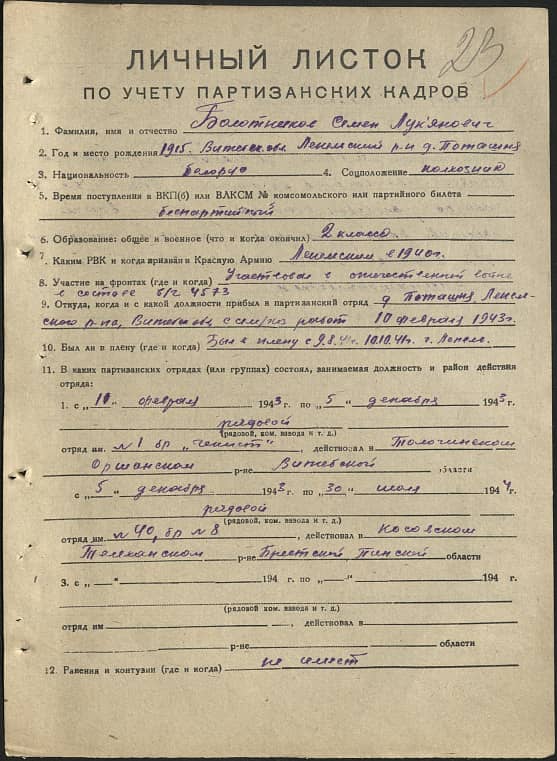 23
ЛИЧНЫЙ ЛИСТОК
ПО УЧЕТУ ПАРТИЗАНСКИХ КАДРОВ
1. Фамилия, имя и отчество Болотников Семен Лук'янович
2. Год и место рождения 1915. Витебск обл. Лепельский р-н д. Поташня
3. Национальность белорус 4. Соцположение колхозник
5. Время поступления в ВКП(б) или ВЛКСМ № комсомольского или партийного билета
беспартийный
6. Образование: общее и военное (что и когда окончил) 2 класса
7. Каким РВК и когда призван в Красную Армию Лепельским в 1940 г.
8. Участие на фронтах (где и когда) Участвовал в отечественной войне
в составе в/ч 4573
9. Откуда, когда и с какой должности прибыл в партизанский отряд д Поташня Лепель-
ского р-на, Витебск обл с сел/хоз работ 10 февраля 1943 г.
10. Был ли в плену (где и когда) Был в плену с 9.8.41 10.10.41 г. г. Лепель
11. В каких партизанских отрядах (или группах) состоял, занимаемая должность и район действия
отряда:
1. с „ 10 " февраля 1943 г. по „ 5 " декабря 1943 г.
рядовой
(рядовой, ком. взвода и т. д.)
отряд им. №1 бр "Чекист", действовал в Толочинском
Оршанском р-не Витебской области
с „ 5 " декабря 1943 г. по „ 30 " июля 1944 г.
рядовой
(рядовой, ком. взвода и т. д.)
отряд им. №40, бр №8, действовал в Косовском
Телеханском р-не Брестской Пинской области
3. с „ — " 194 г. по „ — " 194 г.
(рядовой, ком. взвода и т. д.)
отряд им , действовал в
р-не области
12. Ранения и контузии (где и когда) не имеет